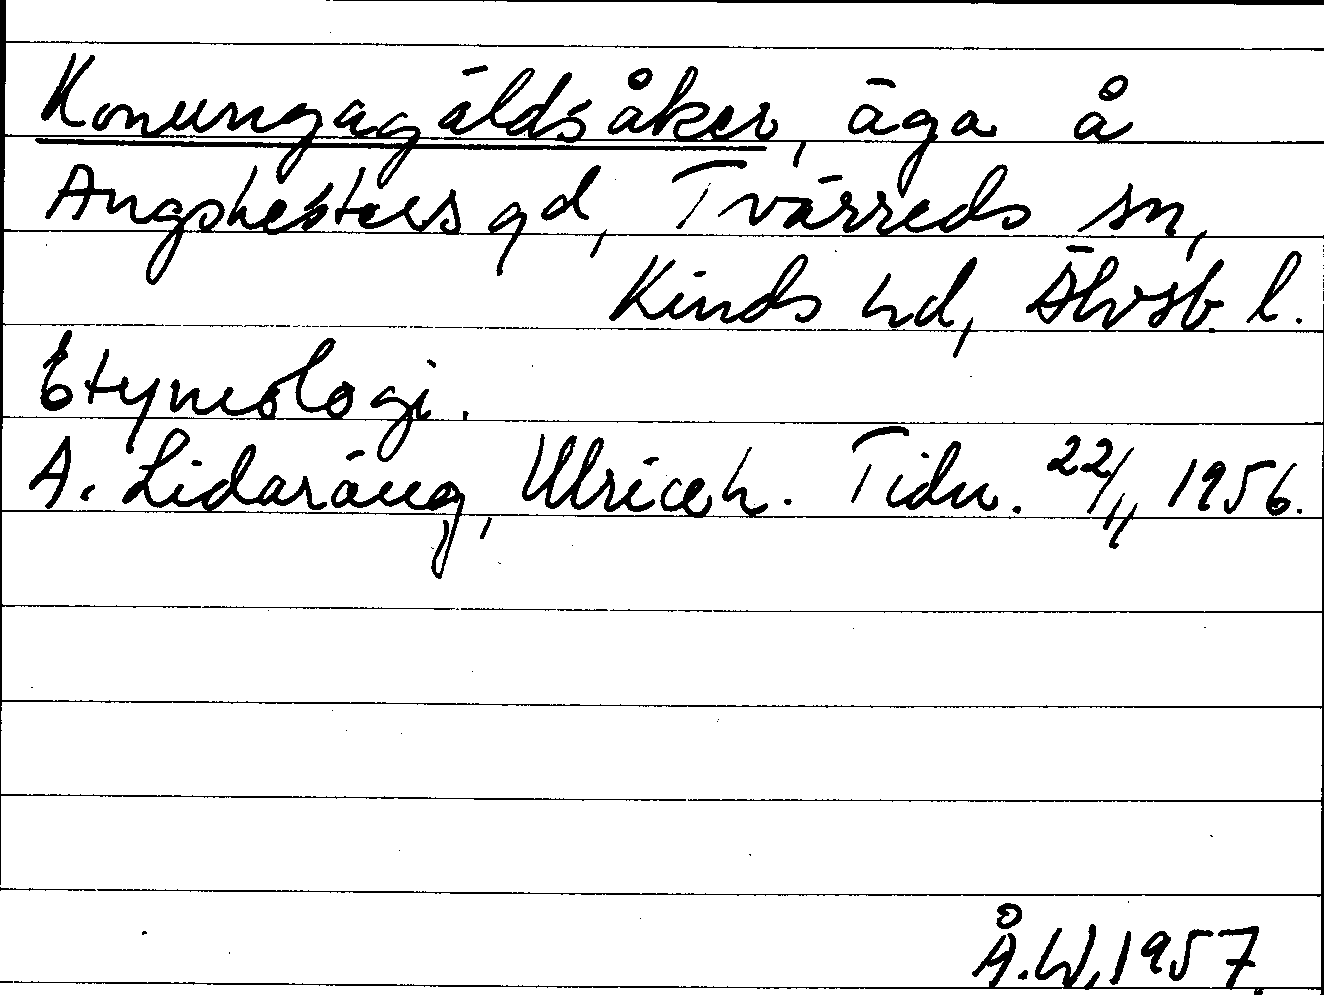 Konungagäldsåker, äga å
gd, Tvärreds sn,
Kinds hd, Älvsb. l.
Etymologi.
A. Lidaräng, Ulriceh. Tidn. 22/11 1956.
Å.W, 1957.